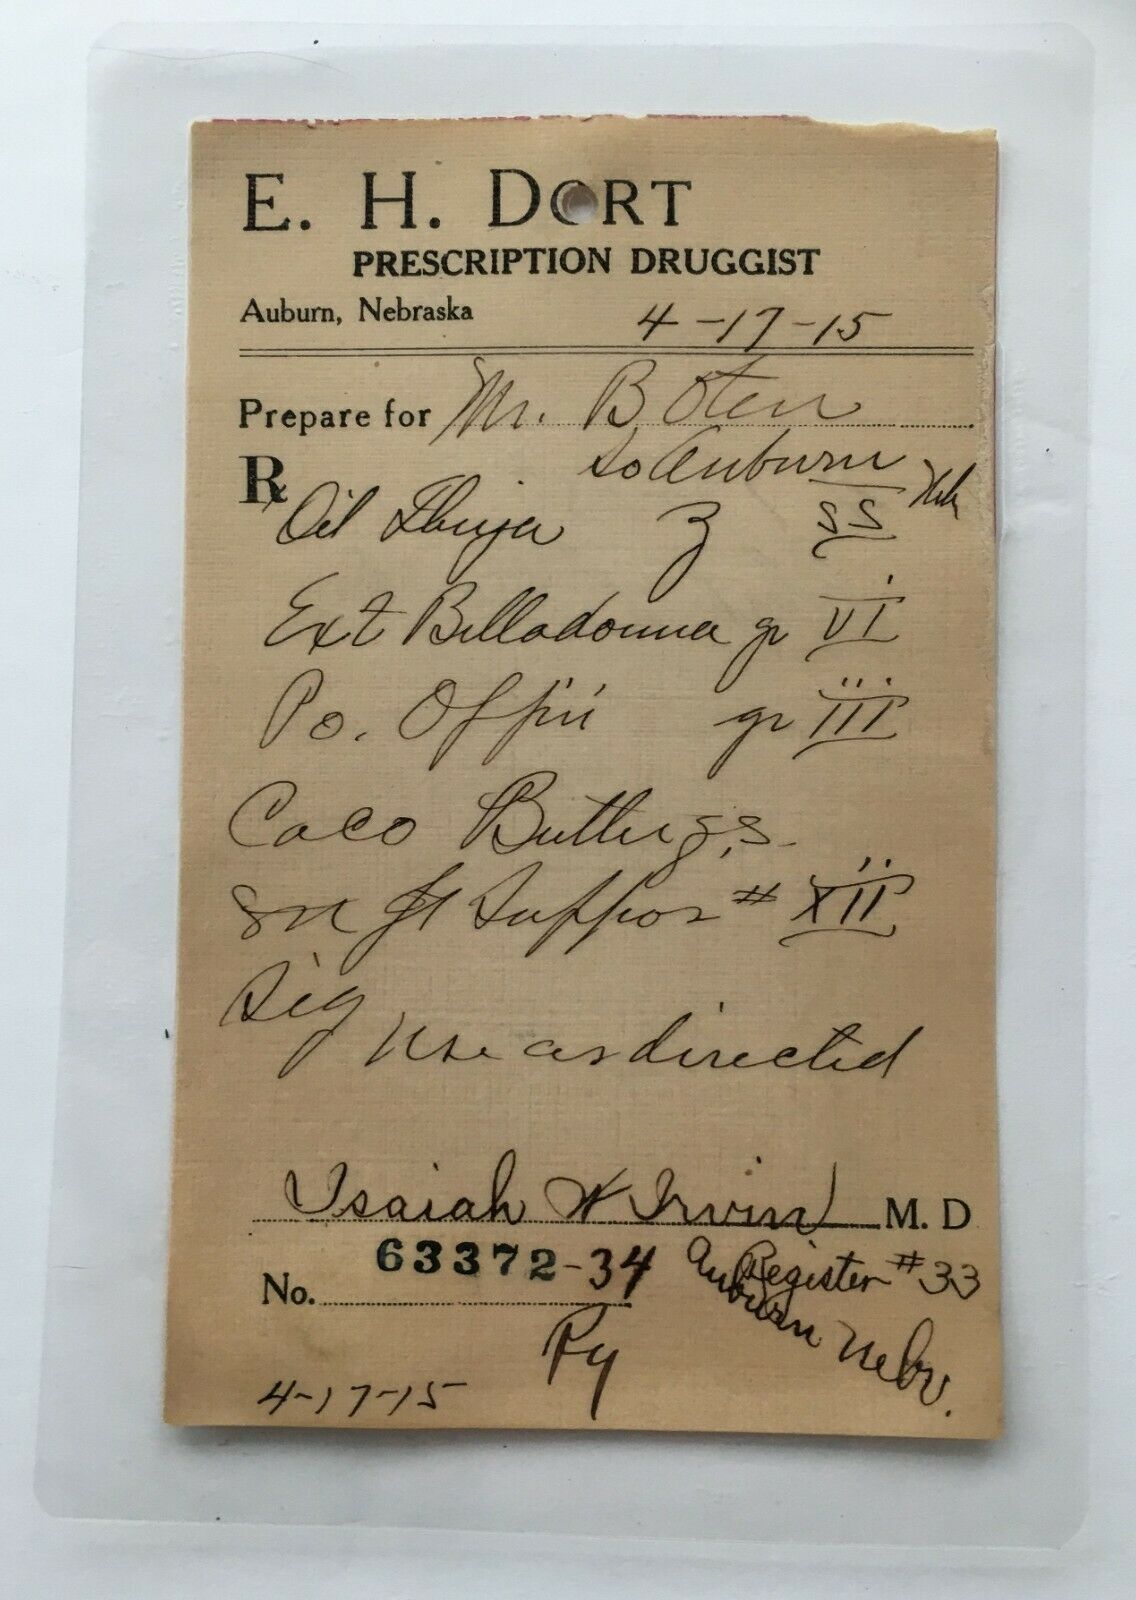 E. H. DORT
PRESCRIPTION DRUGGIST
Auburn, Nebraska 4-17-15
Prepare for Mr. B Oten
So Auburn Neb
Rx
Oil Thuja ʒ ss
Ext Belladonna gr VI
Po. Opii gr III
Caco Butter q.s.
Suppos # XII
Sig
Use as directed
Isaiah W Irvin M. D
No. 63372-34
Register #33
Auburn Nebr.
4-17-15